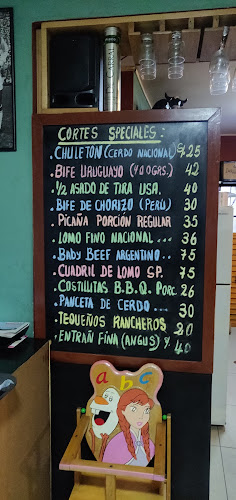 CORTES SPECIALES :
. CHULETÓN (CERDO NACIONAL) 25
. BIFE URUGUAYO (400GRS.) 42
. ½ ASADO DE TIRA USA. 40
. BIFE DE CHORIZO (PERÚ) 30
. PICAÑA PORCIÓN REGULAR 35
. LOMO FINO NACIONAL ... 36
. BABY BEEF ARGENTINO .. 75
. CUADRIL DE LOMO SP. 75
. COSTILLITAS B.B.Q. PORC. 26
. PANCETA DE CERDO ... 30
. TEQUEÑOS RANCHEROS 20
. ENTRAÑ FINA (ANGUS) 40
a b c